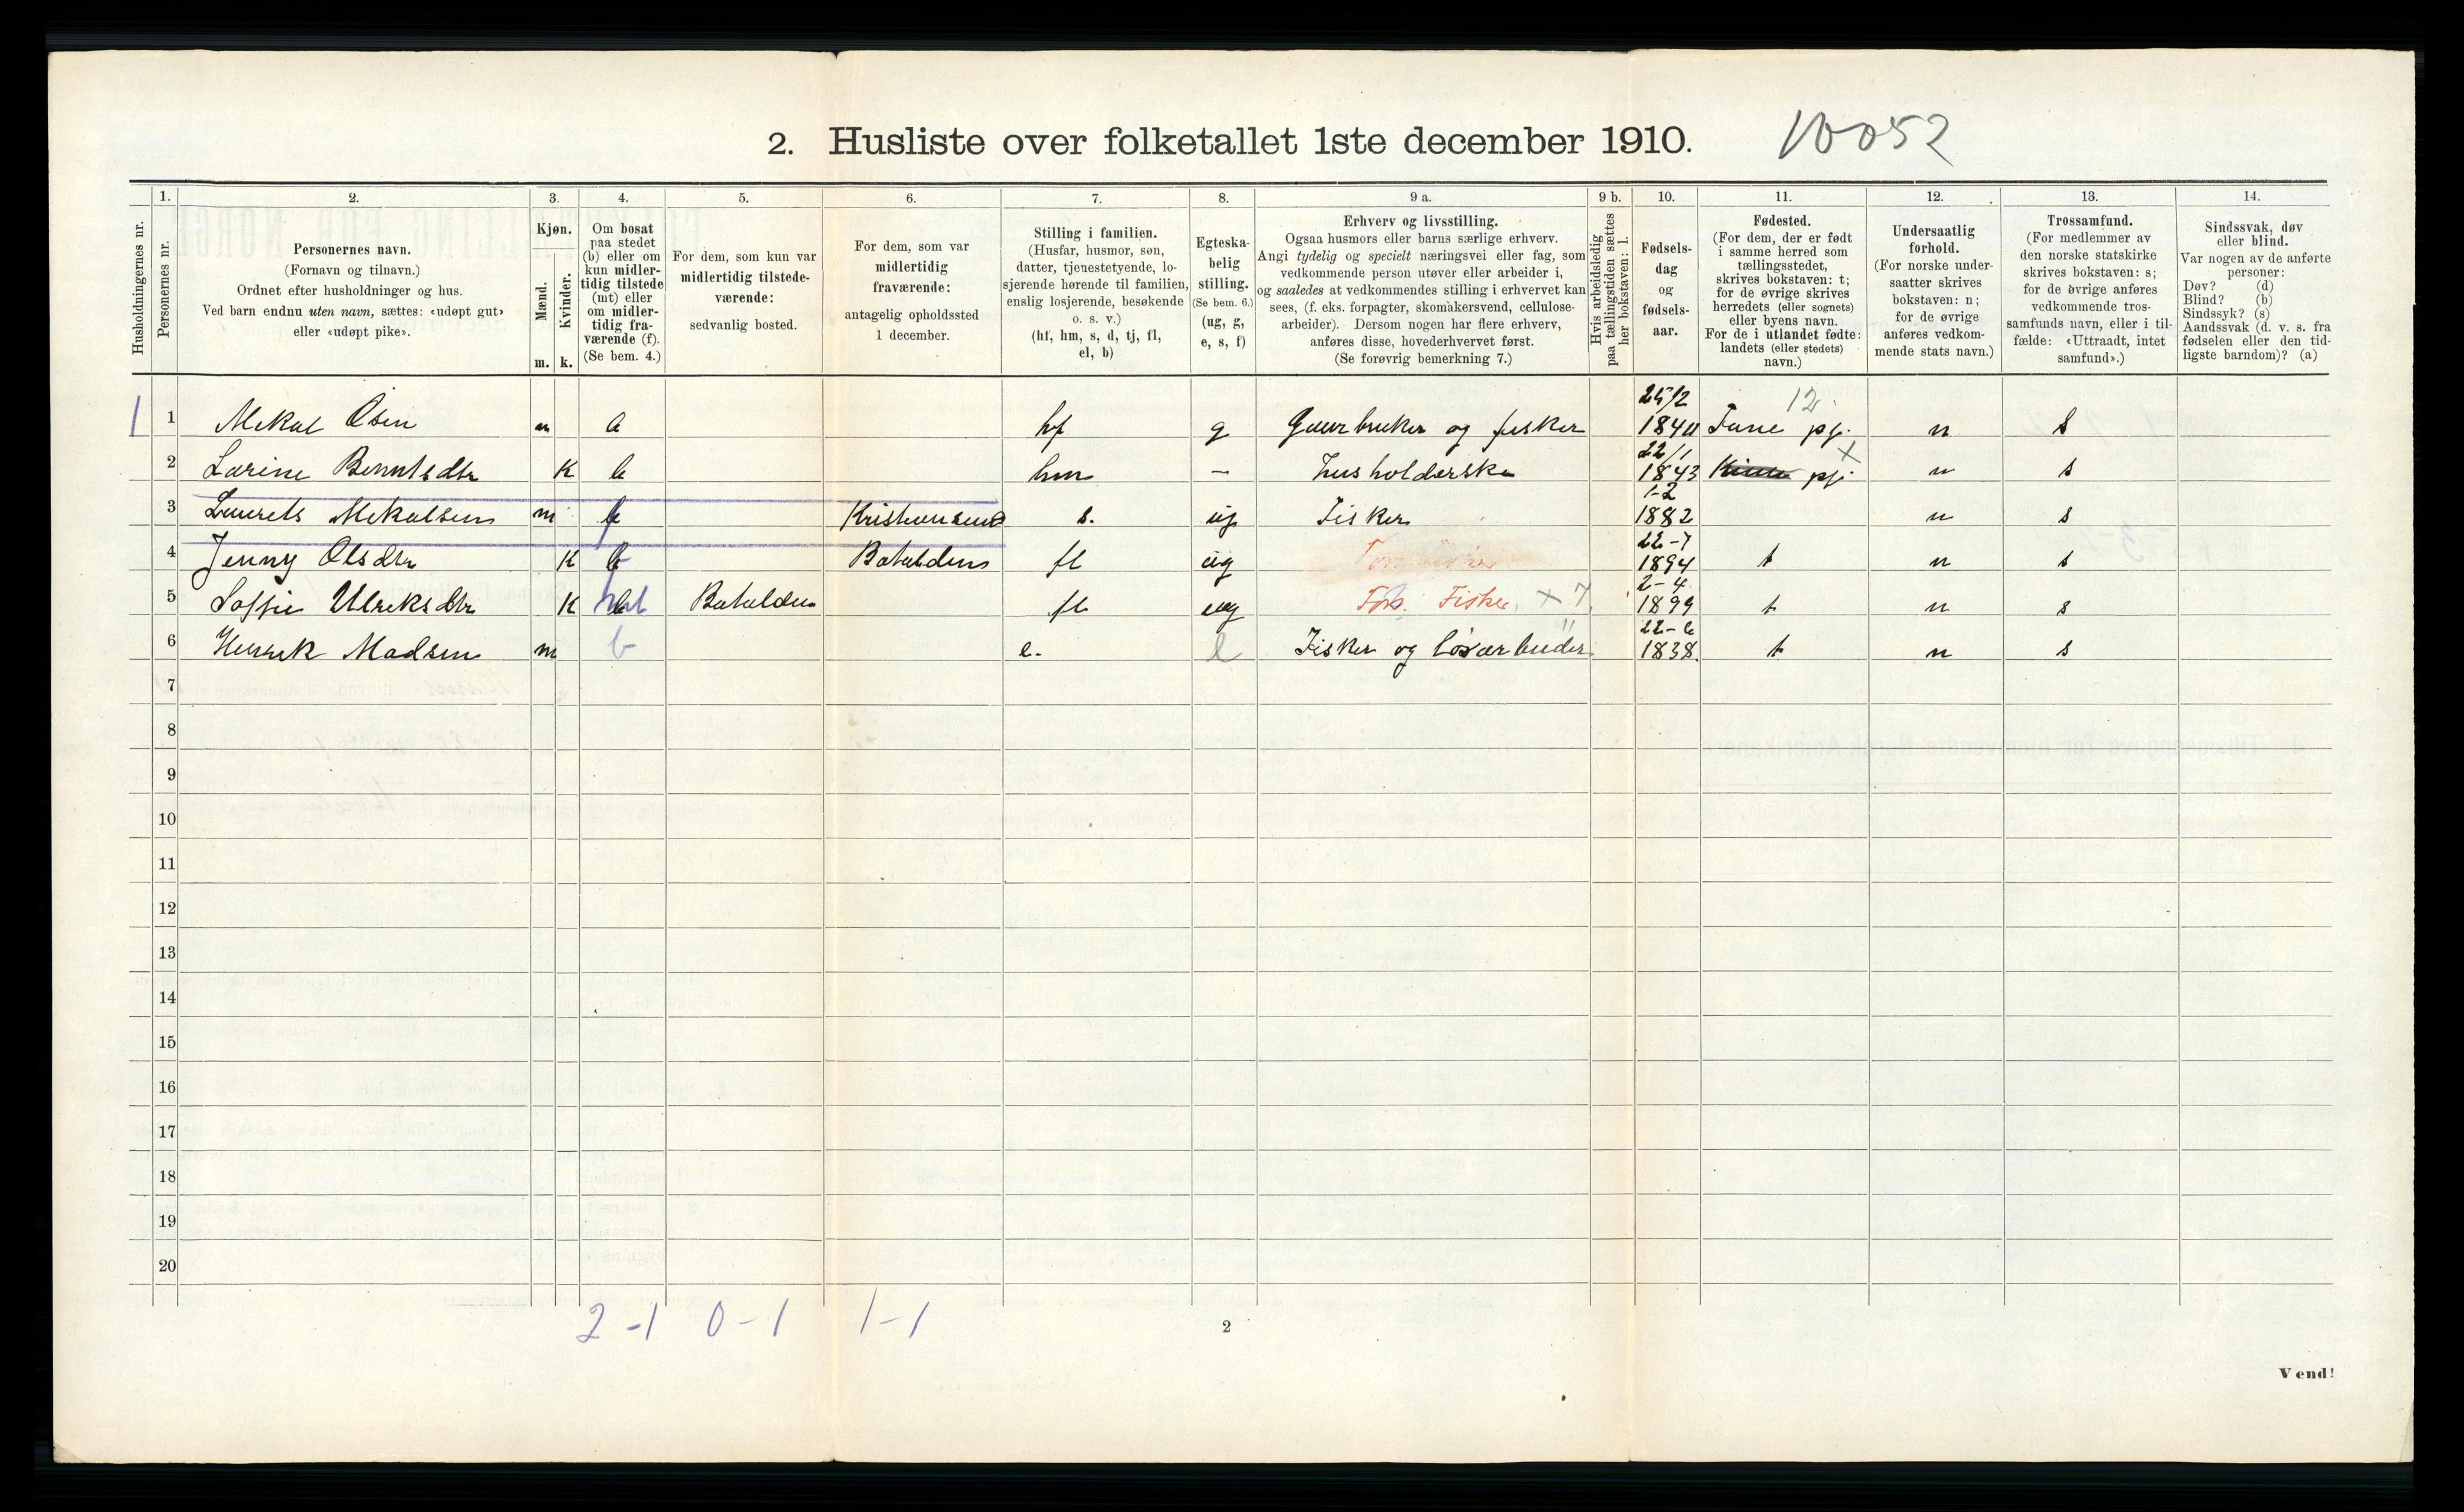 2. Husliste over folketallet 1ste december 1910. 10052
Husholdningernes nr.
1. Personernes nr.
2. Personernes navn. (Fornavn og tilnavn.) Ordnet efter husholdninger og hus. Ved barn endnu uten navn, sættes: «udøpt gut» eller «udøpt pike».
3. Kjøn. Mænd. m. Kvinder. k.
4. Om bosat paa stedet (b) eller om kun midlertidig tilstede (mt) eller om midlertidig fraværende (f). (Se bem. 4.)
5. For dem, som kun var midlertidig tilstedeværende: sedvanlig bosted.
6. For dem, som var midlertidig fraværende: antagelig opholdssted 1 december.
7. Stilling i familien. (Husfar, husmor, søn, datter, tjenestetyende, losjerende hørende til familien, enslig losjerende, besøkende o. s. v.) (hf, hm, s, d, tj, fl, el, b)
8. Egteskabelig stilling. (Se bem. 6.) (ug, g, e, s, f)
9 a. Erhverv og livsstilling. Ogsaa husmors eller barns særlige erhverv. Angi tydelig og specielt næringsvei eller fag, som vedkommende person utøver eller arbeider i, og saaledes at vedkommendes stilling i erhvervet kan sees, (f. eks. forpagter, skomakersvend, cellulosearbeider). Dersom nogen har flere erhverv, anføres disse, hovederhvervet først. (Se forøvrig bemerkning 7.)
9 b. Hvis arbeidsledig paa tællingstiden sættes her bokstaven: l.
10. Fødselsdag og fødselsaar.
11. Fødested. (For dem, der er født i samme herred som tællingsstedet, skrives bokstaven: t; for de øvrige skrives herredets (eller sognets) eller byens navn. For de i utlandet fødte: landets (eller stedets) navn.)
12. Undersaatlig forhold. (For norske undersaatter skrives bokstaven: n; for de øvrige anføres vedkommende stats navn.)
13. Trossamfund. (For medlemmer av den norske statskirke skrives bokstaven: s; for de øvrige anføres vedkommende trossamfunds navn, eller i tilfælde: «Uttraadt, intet samfund».)
14. Sindssvak, døv eller blind. Var nogen av de anførte personer: Døv? (d) Blind? (b) Sindssyk? (s) Aandssvak (d. v. s. fra fødselen eller den tidligste barndom)? (a)
1 1 Mekal Osen m hf g og fisker 25/2 12. n s
2 Larine Berntsdtr K b hm - husholderske 22/1 1843 n s
3 Laurets Mekalsen m s. ug Fisker 1-2 1882 n s
4 Jenny Olsdtr K Batalden fl ug 22-7 1894 t n s
5 Soffie Ulreksdtr K Batalden fl ug Fors. Fisker × 7 2-4 1899 t n s
6 Henrik Madsen m b e. Fisker og 1838 t n s
7
8
9
10
11
12
13
14
15
16
17
18
19
20
2-1 0-1 1-1
2
Vend!